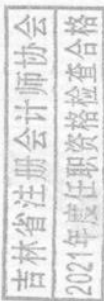 吉林省注册会计师协会
2021年度任职资格检查合格